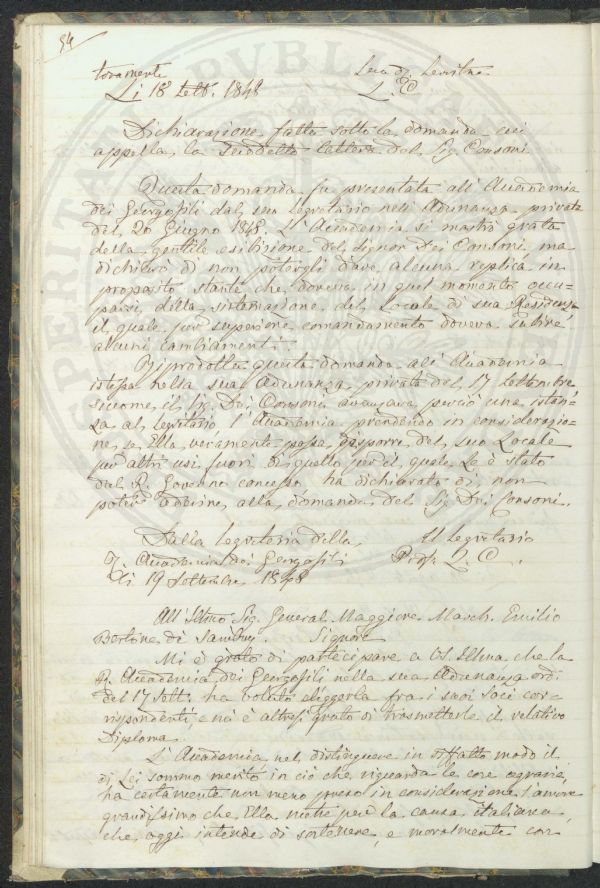 54
toramente
Li 18 Sett. 1848
L. C
Dichiarazione fatta sotto la domanda cui
appella la Lettera del Sig. Consoni
Questa domanda fu presentata all'Accademia
dei Georgofili dal suo Segretario nell'Adunanza privata
del 20 Giugno 1848. L'Accademia si mostrò grata
della gentile esibizione del Signor Dei Consoni, ma
dichiarò di non potergli dare alcuna replica in
proposito stante che doveva in quel momento occu=
parsi della sistemazione del Locale di sua Residenza
il quale per superiore comandamento doveva subire
alcuni cambiamenti.
Riprodotta questa domanda all'Accademia
istessa nella sua Adunanza privata del 17 Settembre
siccome il Sig. Dei Consoni avanzava perciò una istan=
za al Segretario l'Accademia prendendo in considerazio=
ne, se Ella veramente possa disporre del suo Locale
per altri usi fuori di quello per il quale le è stato
dal R. Governo concesso ha dichiarato di non
poter aderire alla domanda del Sig. Dei Consoni.
Dalla Segreteria della Il Segretario
I. Accademia dei Georgofili Prof. L. C.
Li 19 Settembre 1848
All'Illmo Sig. General Maggiore March. Emilio
Bertone di Sambuy Signore
Mi è grato di partecipare a VS. Illma che la
R. Accademia dei Georgofili nella sua Adunanza ord.
del 17 Sett. ha voluto eliggerla fra i suoi Soci cor=
rispondenti e mi è altresì grato di trasmetterle il relativo
Diploma
L'Accademia nel distinguere in siffatto modo il
di Lei sommo merito in ciò che riguarda le cose agrarie,
ha certamente non meno preso in considerazione l'amore
grandissimo che Ella mette per la causa italiana,
che oggi intende di sostenere, e moralmente con